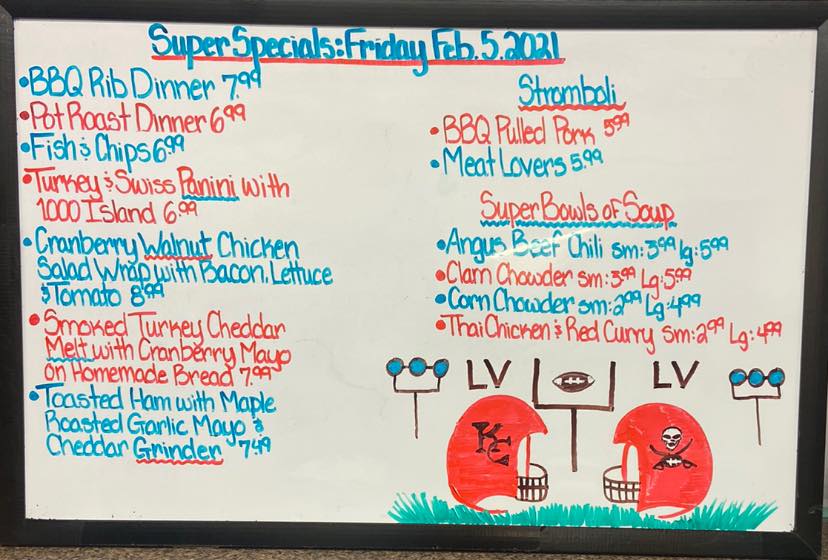 Super Specials: Friday Feb. 5. 2021
•BBQ Rib Dinner 7.99
•Pot Roast Dinner 6.99
•Fish & Chips 6.99
•Turkey & Swiss Panini with
1000 Island 6.99
•Cranberry Walnut Chicken
Salad Wrap with Bacon, Lettuce
& Tomato 8.99
•Smoked Turkey Cheddar
Melt with Cranberry Mayo
on Homemade Bread 7.99
•Toasted Ham with Maple
Roasted Garlic Mayo &
Cheddar Grinder 7.49
Stromboli
•BBQ Pulled Pork 5.99
•Meat Lovers 5.99
Super Bowls of Soup
•Angus Beef Chili sm: 3.99 lg: 5.99
•Clam Chowder sm: 3.99 Lg: 5.99
•Corn Chowder sm: 2.99 Lg: 4.99
•Thai Chicken & Red Curry Sm: 2.99 Lg: 4.99
LV LV
KC